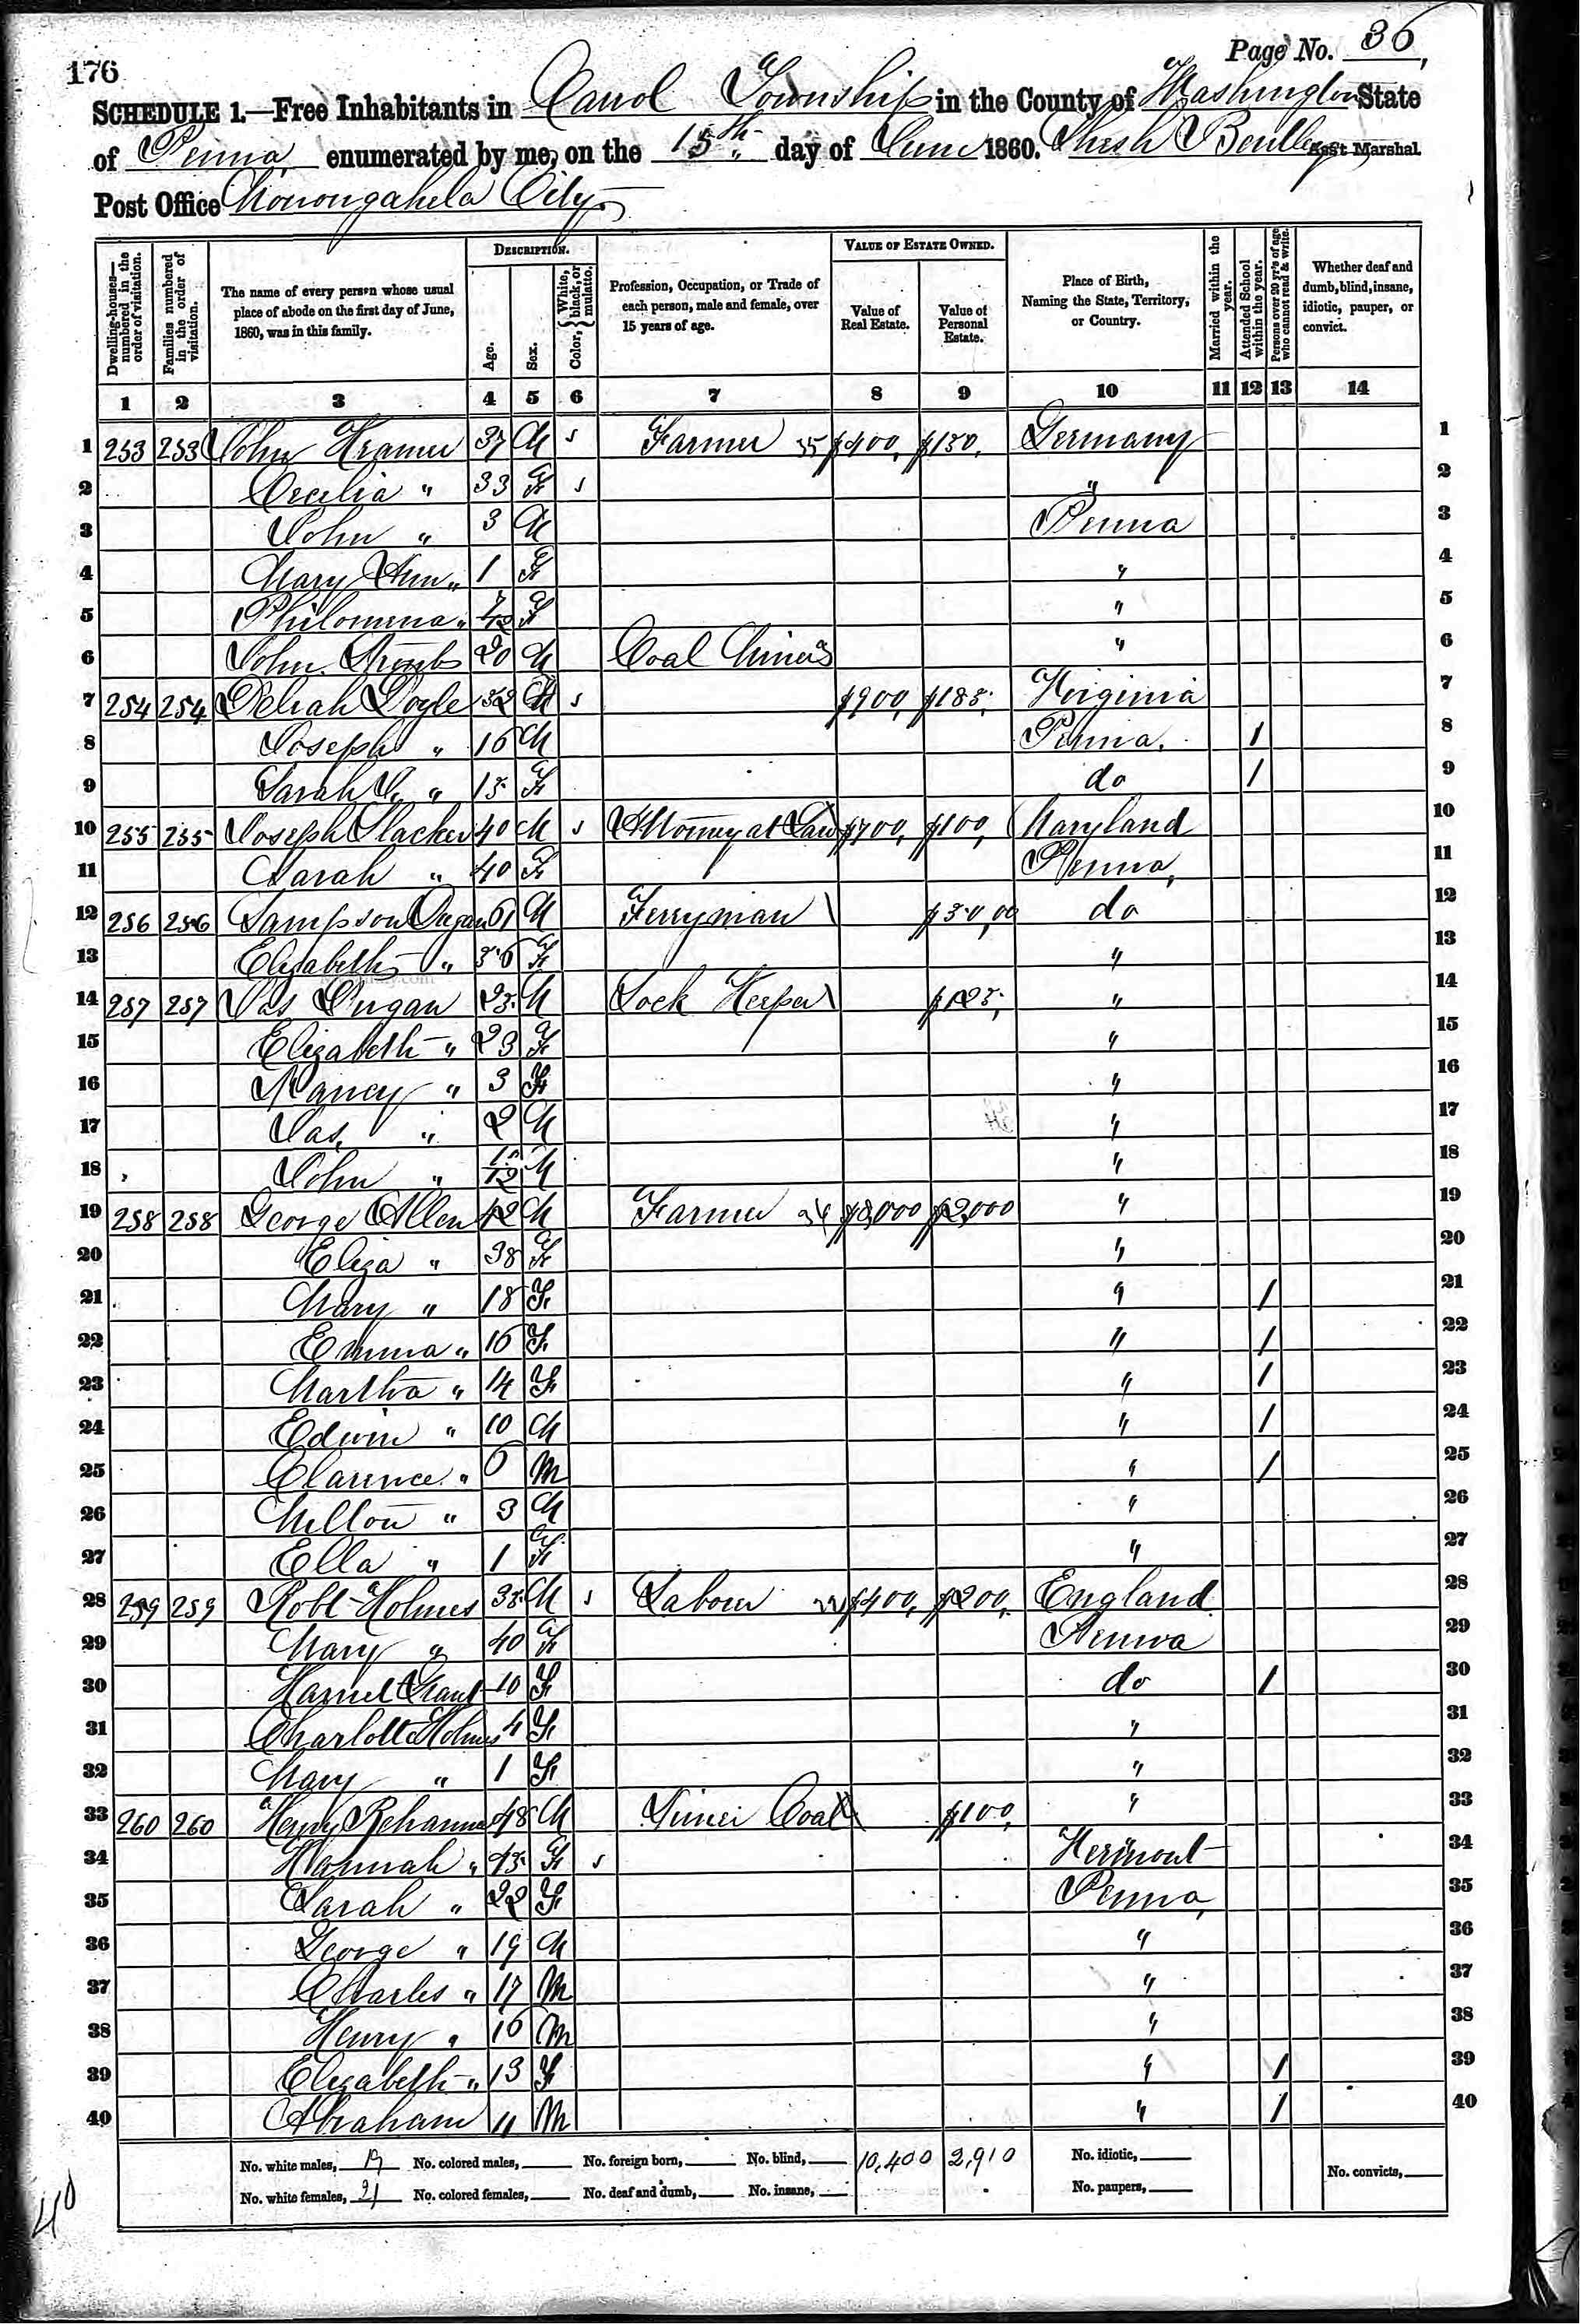 Page No. 36,
176
SCHEDULE 1.—Free Inhabitants in Carrol Township in the County of Washington State
of Penna, enumerated by me, on the 15th day of June 1860. Ass't Marshal.
Post Office Monongahela City.
Dwelling-houses—numbered in the order of visitation.
Families numbered in the order of visitation.
The name of every person whose usual place of abode on the first day of June, 1860, was in this family.
DESCRIPTION.
Age.
Sex.
Color, { White, black, or mulatto.
Profession, Occupation, or Trade of each person, male and female, over 15 years of age.
VALUE OF ESTATE OWNED.
Value of Real Estate.
Value of Personal Estate.
Place of Birth, Naming the State, Territory, or Country.
Married within the year.
Attended School within the year.
Persons over 20 yr's of age who cannot read & write.
Whether deaf and dumb, blind, insane, idiotic, pauper, or convict.
1 2 3 4 5 6 7 8 9 10 11 12 13 14
1 253 253 John Kramer 37 M Farmer 35 $400, $150, Germany 1
2 Cecelia " 33 F " 2
3 John " 3 M Penna 3
4 Mary Ann " 1 F " 4
5 Philomena " 7/12 F " 5
6 John 20 M Coal Miner " 6
7 254 254 Deliah Dogle 32 $900, $185, Virginia 7
8 Joseph " 16 M Penna. / 8
9 Sarah J. " 15 F do / 9
10 255 255 Joseph Slacker 40 M Attorney at Law $700, $100, Maryland 10
11 Sarah " 40 F Penna, 11
12 256 256 Sampson Dugan 61 M Ferryman $50,00 do 12
13 Elizabeth " 56 F " 13
14 257 257 Jas Dugan 25 M Lock Keeper $125, " 14
15 Elizabeth " 23 F " 15
16 Nancy " 3 F " 16
17 Jas, " 2 M " 17
18 John " M " 18
19 258 258 George Allen 42 M Farmer 34 $8,000 $2,000 " 19
20 Eliza " 38 F " 20
21 Mary " 18 F " / 21
22 Emma " 16 F " / 22
23 Martha " 14 F " / 23
24 Edwin " 10 M " / 24
25 Clarence " 6 M " / 25
26 Milton " 3 M " 26
27 Ella " 1 F " 27
28 259 259 Robt Holmes 35 M Labourer $400, $200, England 28
29 Mary " 40 F Penna 29
30 Harriet Grant 10 F do / 30
31 Charlotte Holmes 4 F " 31
32 Mary " 1 F " 32
33 260 260 Henry 48 M Miner Coal $100, " 33
34 Hannah " 45 F Vermont 34
35 Sarah " 22 F Penna, 35
36 George " 19 M " 36
37 Charles " 17 M " 37
38 Henry " 16 M " 38
39 Elizabeth " 13 F " / 39
40 Abraham 11 M " / 40
No. white males, 19 No. colored males, No. foreign born, No. blind, 10,400 2,910 No. idiotic,
No. white females, 21 No. colored females, No. deaf and dumb, No. insane, No. paupers, No. convicts,
40